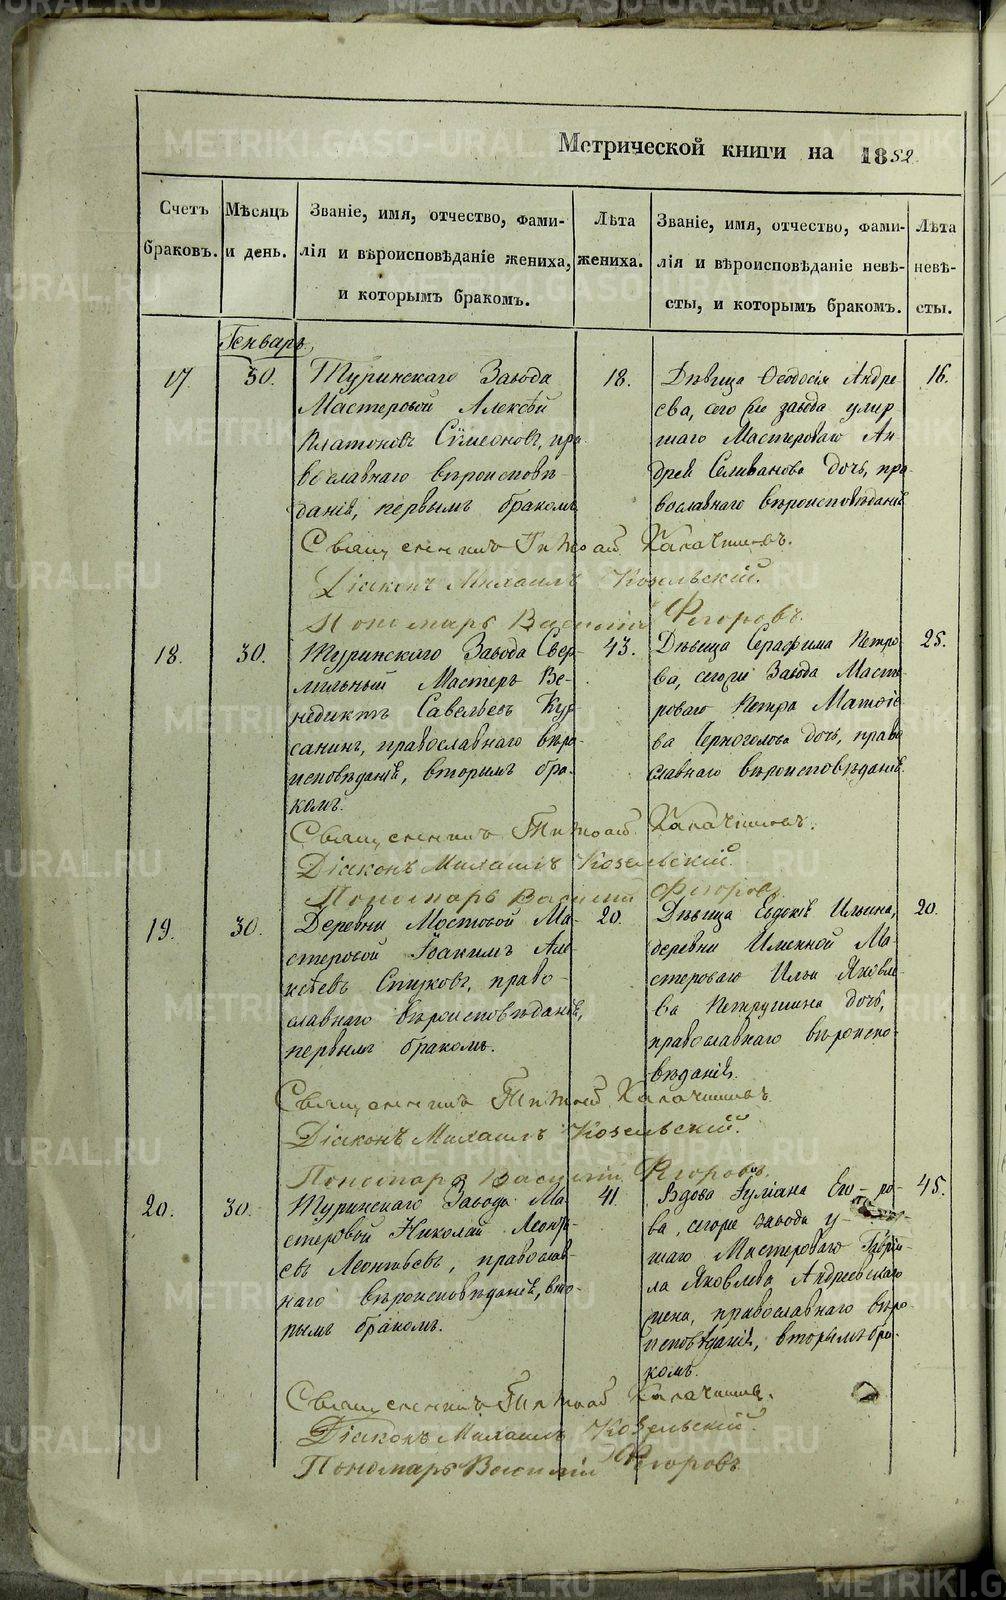 Метрической книги на 1852
Счетъ браковъ.
Мѣсяцъ и день.
Званіе, имя, отчество, фами-
лія и вѣроисповѣданіе жениха,
и которымъ бракомъ.
Лѣта жениха.
Званіе, имя, отчество, фами-
лія и вѣроисповѣданіе невѣ-
сты, и которымъ бракомъ.
Лѣта невѣ-
сты.
Генварь,
17.
30.
Туринскаго Завода
Мастеровой Алексѣй
Платоновъ Сѵмеоновъ, пра-
вославнаго вѣроисповѣ-
данія, первымъ бракомъ
18.
Дѣвица Ѳеодосія Андре-
ева, сего же завода умер-
шаго Мастероваго Ан-
дрея Селиванова дочь, пра-
вославнаго вѣроисповѣданія
16.
Священникъ Калачниковъ.
Діаконъ Михаилъ Козельскій.
Пономарь Василій Ѳегоровъ.
18.
30.
Туринскаго Завода Свер-
лильный Мастеръ Ве-
недиктъ Савельевъ Кур-
санинъ, православнаго вѣро-
исповѣданія, вторымъ бра-
комъ.
43.
Дѣвица Серафима Петро-
ва, сего же Завода Масте-
роваго Петра Матвѣе-
ва Черноголова дочь, право
славнаго вѣроисповѣданія.
25.
Священникъ Калачниковъ.
Діаконъ Михаилъ Козельскій.
Пономарь Василій Ѳегоровъ.
19.
30.
Деревни Мостовой Ма-
стеровой Іоакимъ Але-
ксѣевъ право-
славнаго вѣроисповѣданія,
первымъ бракомъ.
20.
Дѣвица Евдокія Ильина,
деревни Именной Ма-
стероваго Ильи Яковле-
ва Петрушина дочь,
православнаго вѣроиспо-
вѣданія.
20.
Священникъ Калачниковъ
Діаконъ Михаилъ Козельскій.
Пономарь Василій Ѳегоровъ.
20.
30.
Туринскаго Завода Ма-
стеровой Николай Леонть-
евъ Леонтьевъ, православ-
наго вѣроисповѣданія, вто-
рымъ бракомъ.
41.
Вдова Іуліана Его-ро-
ва, сего же завода у-
шаго Мастероваго Гаврі-
ла Яковлева Андреевскаго
жена, православнаго вѣро-
исповѣданія, вторымъ бра-
комъ.
45.
Священникъ Калачниковъ.
Діаконъ Михаилъ Козельскій.
Пономарь Василій Ѳегоровъ
METRIKI.GASO-URAL.RU